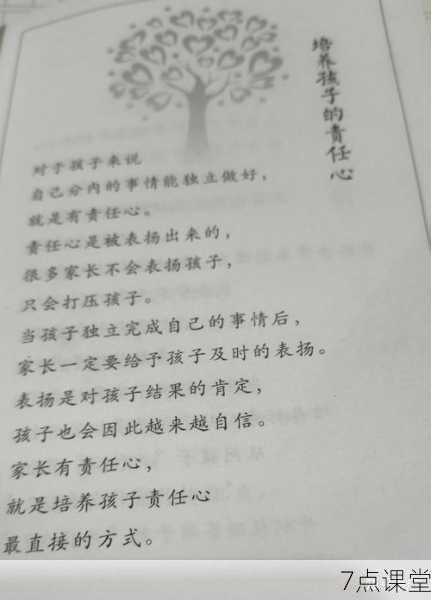 培养孩子的责任心
对于孩子来说
自己分内的事情能独立做好，
就是有责任心。
责任心是被表扬出来的，
很多家长不会表扬孩子，
只会打压孩子。
当孩子独立完成自己的事情后，
家长一定要给予孩子及时的表扬。
表扬是对孩子结果的肯定，
孩子也会因此越来越自信。
家长有责任心，
就是培养孩子责任心
最直接的方式。
7点课堂